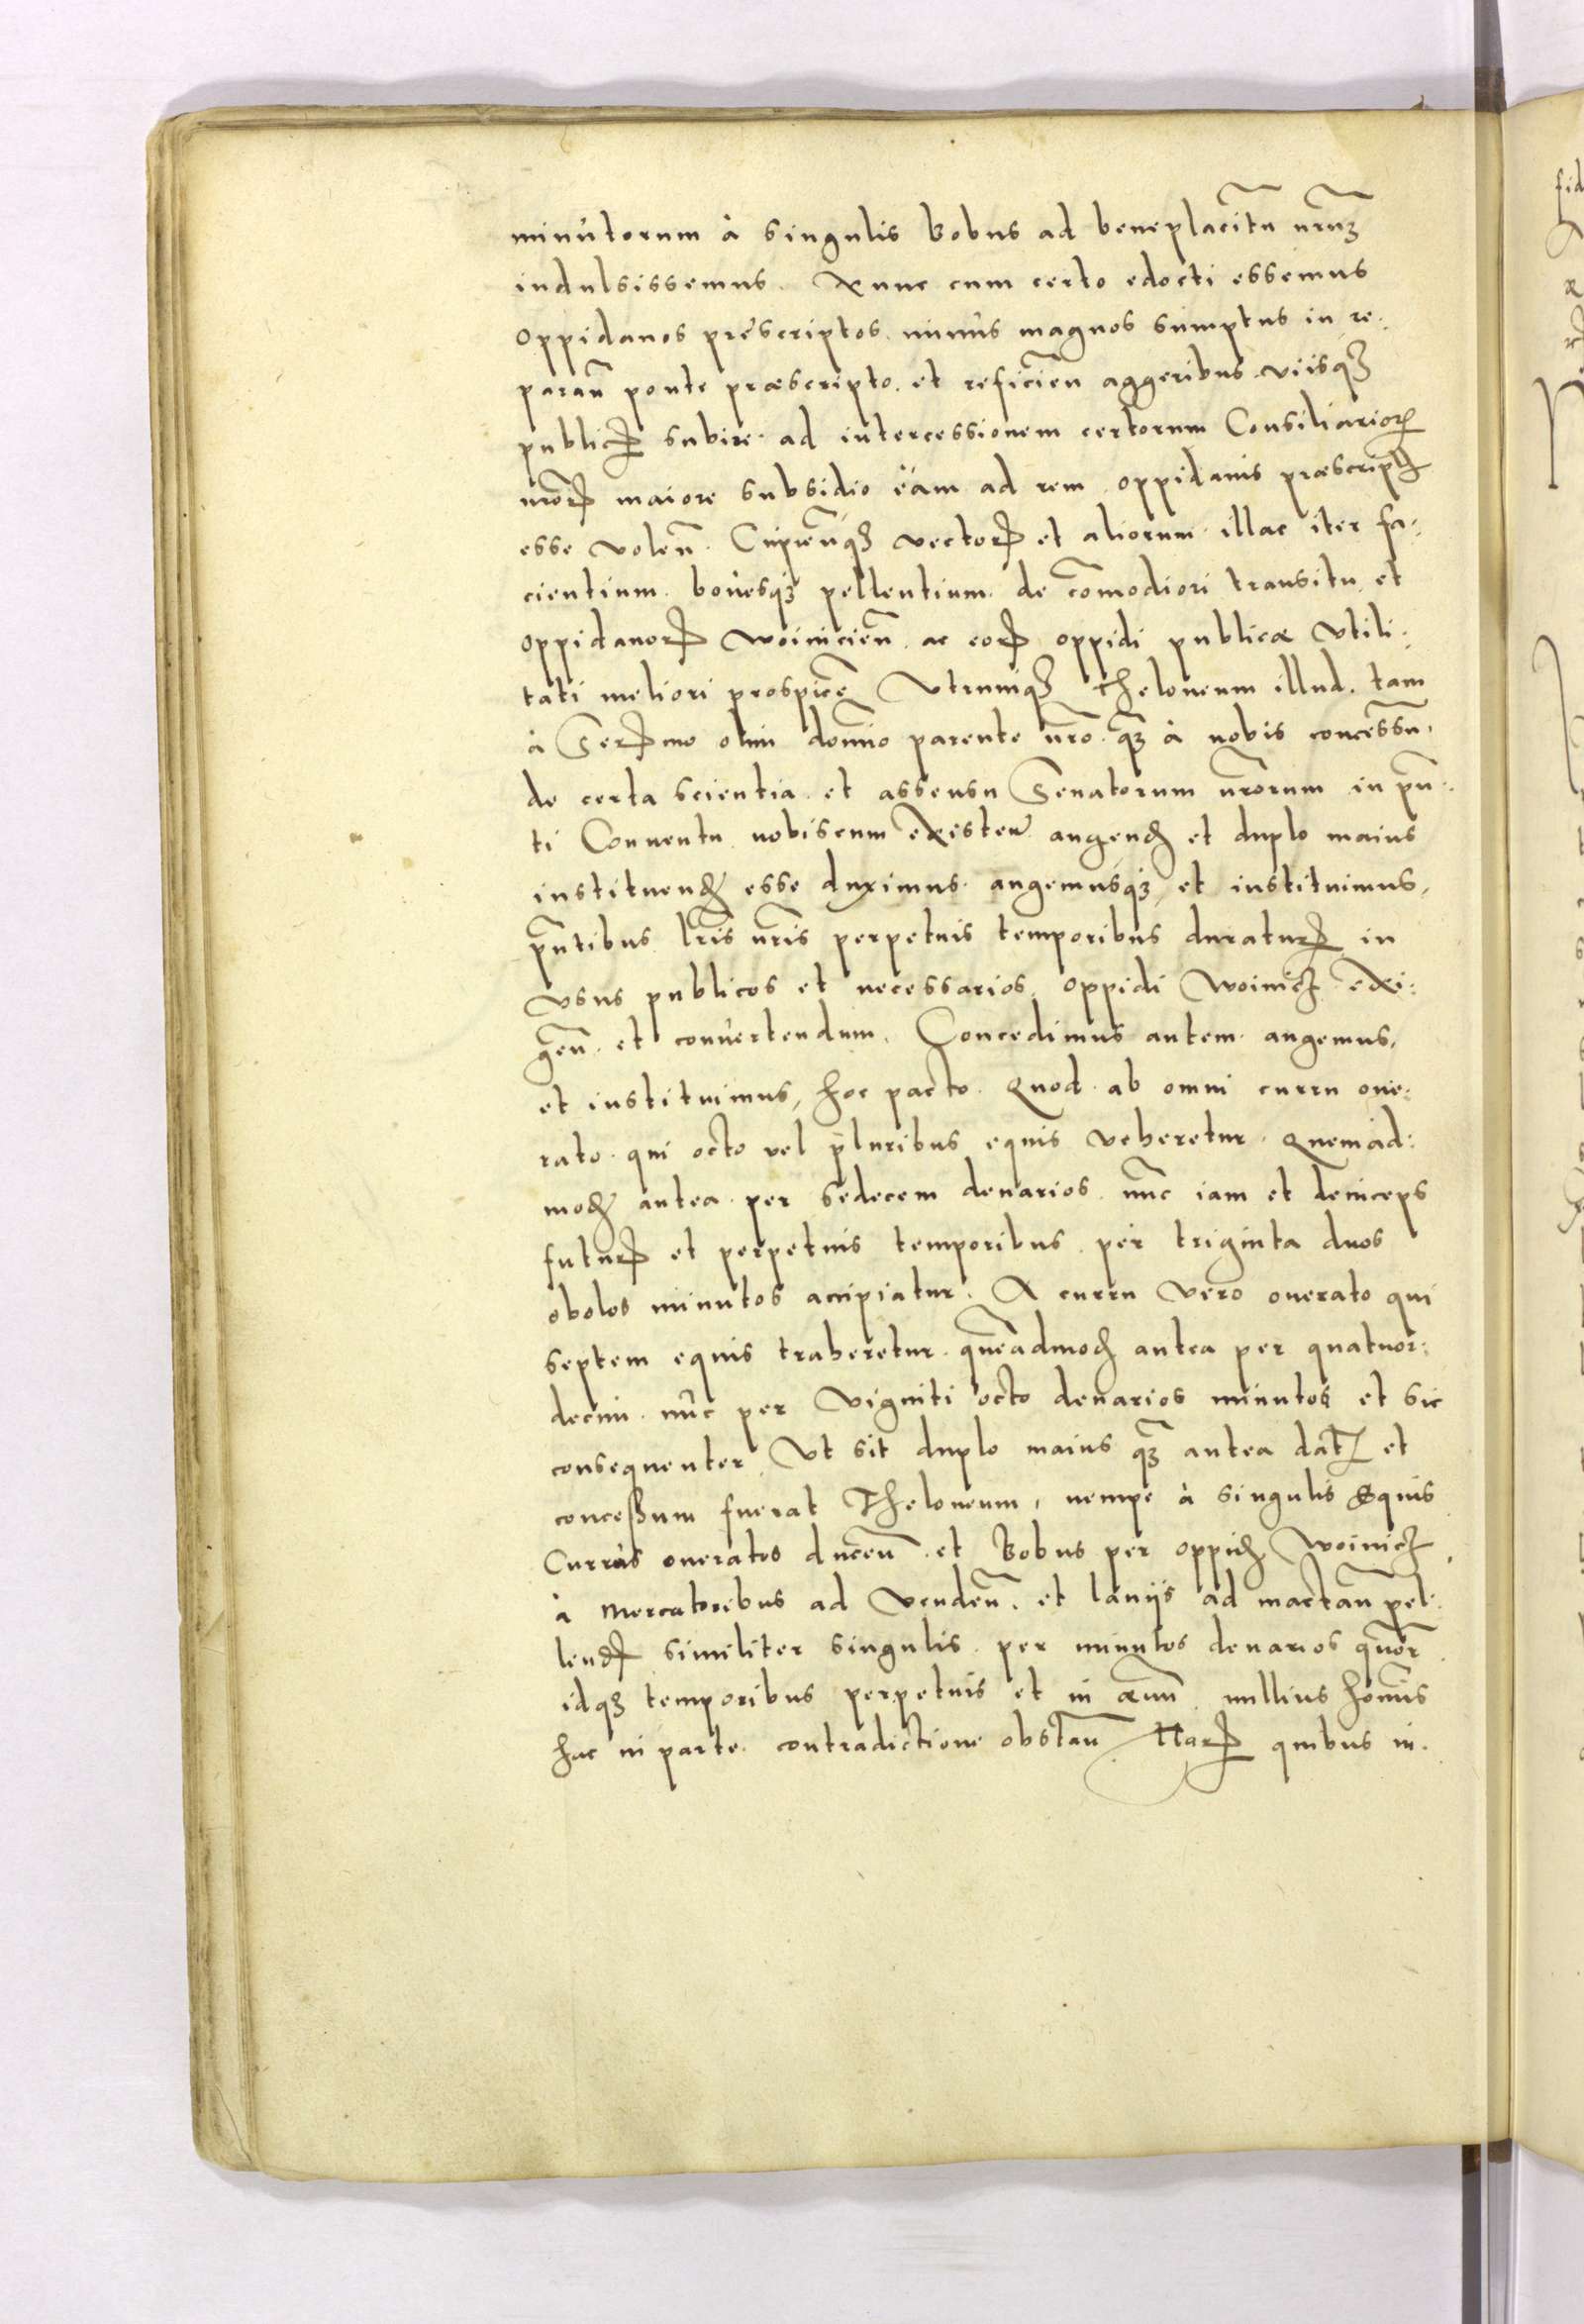 minutorum à singulis Bobus ad beneplacitu nrum
indulsissemus. Et nunc cum certo edocti essemus
oppidanos prescriptos nimis magnos sumptus in re-
paran ponte præscripto. et reficien aggeribus viisq3
publicis subire. ad intercessionem certorum Consiliarior
nror maiore subsidio eam ad rem oppidanis præscript
esse volen. Cupienq3 vector et aliorum illac iter fa-
cientium. bouesq3 pellentium. de comodiori transitu et
oppidanor Woinicien. ac eor oppidi publicæ vtili-
tati meliori prospice Vtrumq3 theloneum illud. tam
à Sermo olim domino parente nro. q3 à nobis concessu.
de certa scientia et assensu Senatorum nrorum in pn-
ti Conuentu nobiscum existen augend et duplo maius
instituend esse duximus. augemusq3 et instituimus,
pntibus lris nris perpetuis temporibus duratur in
vsus publicos et necessarios oppidi Woinicz exi-
gen. et conuertendum. Concedimus autem augemus,
et instituimus, hoc pacto. Quod ab omni curru one-
rato qui octo vel pluribus equis veheretur. Quemad-
mod antea per sedecem denarios nunc iam et deinceps
futur et perpetuis temporibus per triginta duos
obolos minutos accipiatur. A curru vero onerato qui
septem equis traheretur. queadmod antea per quatuor-
decim nuc per viginti octo denarios minutos et sic
consequenter Vt sit duplo maius q3 antea dat et
conceßum fuerat Theloneum, nempe à singulis Equis
Currus oneratos ducen et Bobus per oppid Woinicz,
à Mercatoribus ad venden. et laniis ad mactan pel-
lend similiter singulis per minutos denarios quor
idq3 temporibus perpetuis et in æuu nullius hominis
hac in parte contradictione obstan Har quibus in.